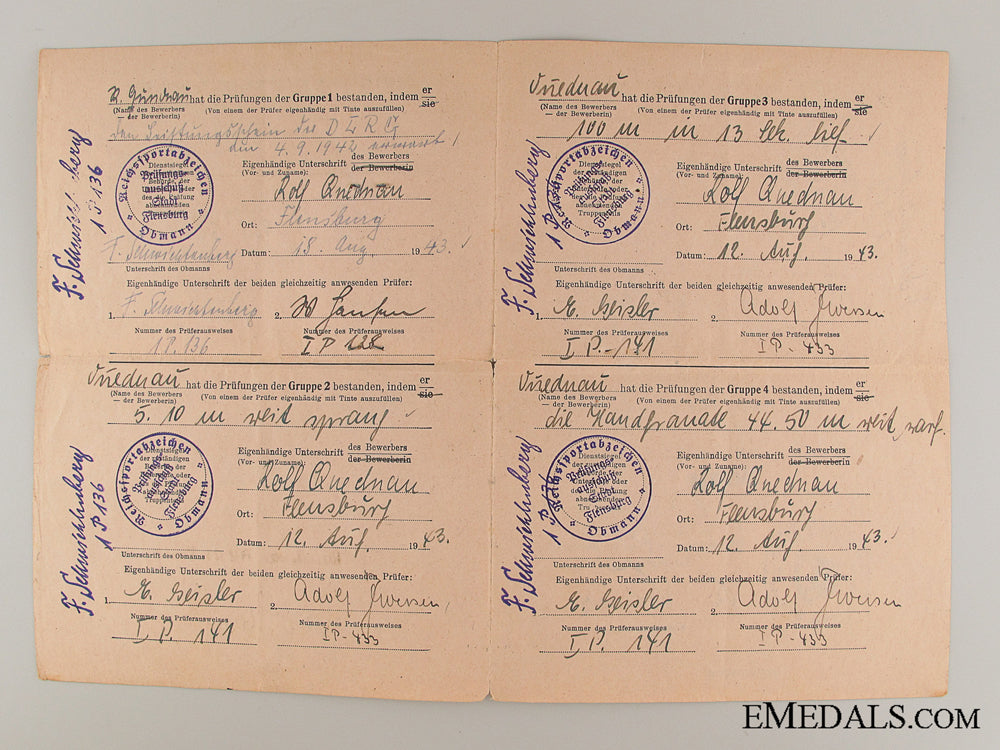 hat die Prüfungen der Gruppe 1 bestanden, indem er sie
(Name des Bewerbers — der Bewerberin) (Von einem der Prüfer eigenhändig mit Tinte auszufüllen)
den Leistungsschein der D L R G
am 4. 9. 1942 erwarb
Reichssportabzeichen
Prüfungs-
ausschuß
Stadt
Flensburg
Obmann
Eigenhändige Unterschrift des Bewerbers der Bewerberin
(Vor- und Zuname):
Rolf Quednau
Ort: Flensburg
Datum: 18. Aug. 1943.
F. Schwichtenberg
1 P 136
F. Schwichtenberg
Unterschrift des Obmanns
Eigenhändige Unterschrift der beiden gleichzeitig anwesenden Prüfer:
1. F. Schwichtenberg 2. W Hansen
Nummer des Prüferausweises Nummer des Prüferausweises
1 P. 136 I P 128
Quednau hat die Prüfungen der Gruppe 2 bestanden, indem er sie
(Name des Bewerbers — der Bewerberin) (Von einem der Prüfer eigenhändig mit Tinte auszufüllen)
5.10 m weit sprang
Reichssportabzeichen
Prüfungs-
ausschuß
Stadt
Flensburg
Obmann
Eigenhändige Unterschrift des Bewerbers der Bewerberin
(Vor- und Zuname):
Rolf Quednau
Ort: Flensburg
Datum: 12. Aug. 1943.
F. Schwichtenberg
1 P 136
Unterschrift des Obmanns
Eigenhändige Unterschrift der beiden gleichzeitig anwesenden Prüfer:
1. E. Geisler 2. Adolf Iwersen
Nummer des Prüferausweises Nummer des Prüferausweises
I P. 141 I P - 433
Quednau hat die Prüfungen der Gruppe 3 bestanden, indem er sie
(Name des Bewerbers — der Bewerberin) (Von einem der Prüfer eigenhändig mit Tinte auszufüllen)
100 m in 13 Sek. lief
Reichssportabzeichen
Prüfungs-
ausschuß
Stadt
Flensburg
Obmann
Eigenhändige Unterschrift des Bewerbers der Bewerberin
(Vor- und Zuname):
Rolf Quednau
Ort: Flensburg
Datum: 12. Aug. 1943.
F. Schwichtenberg
Unterschrift des Obmanns
Eigenhändige Unterschrift der beiden gleichzeitig anwesenden Prüfer:
1. E. Geisler 2. Adolf Iwersen
Nummer des Prüferausweises Nummer des Prüferausweises
I P. - 141 I P - 433
Quednau hat die Prüfungen der Gruppe 4 bestanden, indem er sie
(Name des Bewerbers — der Bewerberin) (Von einem der Prüfer eigenhändig mit Tinte auszufüllen)
die Handgranate 44.50 m weit warf.
Reichssportabzeichen
Prüfungs-
ausschuß
Stadt
Flensburg
Obmann
Eigenhändige Unterschrift des Bewerbers der Bewerberin
(Vor- und Zuname):
Rolf Quednau
Ort: Flensburg
Datum: 12. Aug. 1943.
F. Schwichtenberg
Unterschrift des Obmanns
Eigenhändige Unterschrift der beiden gleichzeitig anwesenden Prüfer:
E. Geisler 2. Adolf Iwersen
Nummer des Prüferausweises Nummer des Prüferausweises
I P. 141 I P - 433
EMEDALS.COM